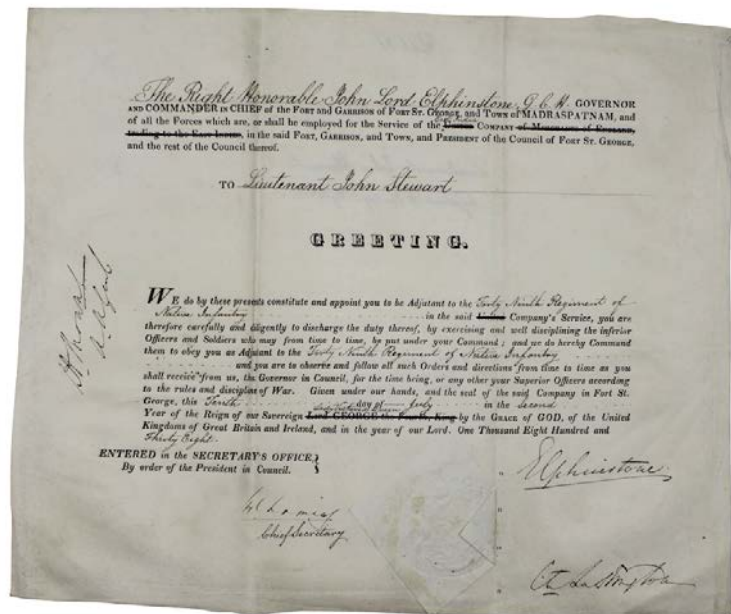 The Right Honorable John Lord Elphinstone G.C.H. GOVERNOR
AND COMMANDER IN CHIEF of the FORT and GARRISON of FORT ST. GEORGE, and TOWN of MADRASPATNAM, and
of all the Forces which are, or shall be employed for the Service of the United COMPANY of MERCHANTS of ENGLAND,
trading to the EAST INDIES, in the said FORT, GARRISON, and TOWN, and PRESIDENT of the Council of FORT ST. GEORGE,
and the rest of the Council thereof.
TO Lieutenant John Stewart
GREETING.
WE do by these presents constitute and appoint you to be Adjutant to the Forty Ninth Regiment of
Native Infantry in the said United Company's Service, you are
therefore carefully and diligently to discharge the duty thereof, by exercising and well disciplining the inferior
Officers and Soldiers who may from time to time, be put under your Command; and we do hereby Command
them to obey you as Adjutant to the Forty Ninth Regiment of Native Infantry
and you are to observe and follow all such Orders and directions from time to time as you
shall receive from us, the Governor in Council, for the time being, or any other your Superior Officers according
to the rules and discipline of War. Given under our hands, and the seal of the said Company in Fort St.
George, this Tenth day of July in the Second
Year of the Reign of our Sovereign Lord GEORGE the Fourth, King by the GRACE of GOD, of the United
Kingdoms of Great Britain and Ireland, and in the year of our Lord. One Thousand Eight Hundred and
Thirty Eight.
ENTERED in the SECRETARY'S OFFICE,
By order of the President in Council.
Elphinstone
Chief Secretary